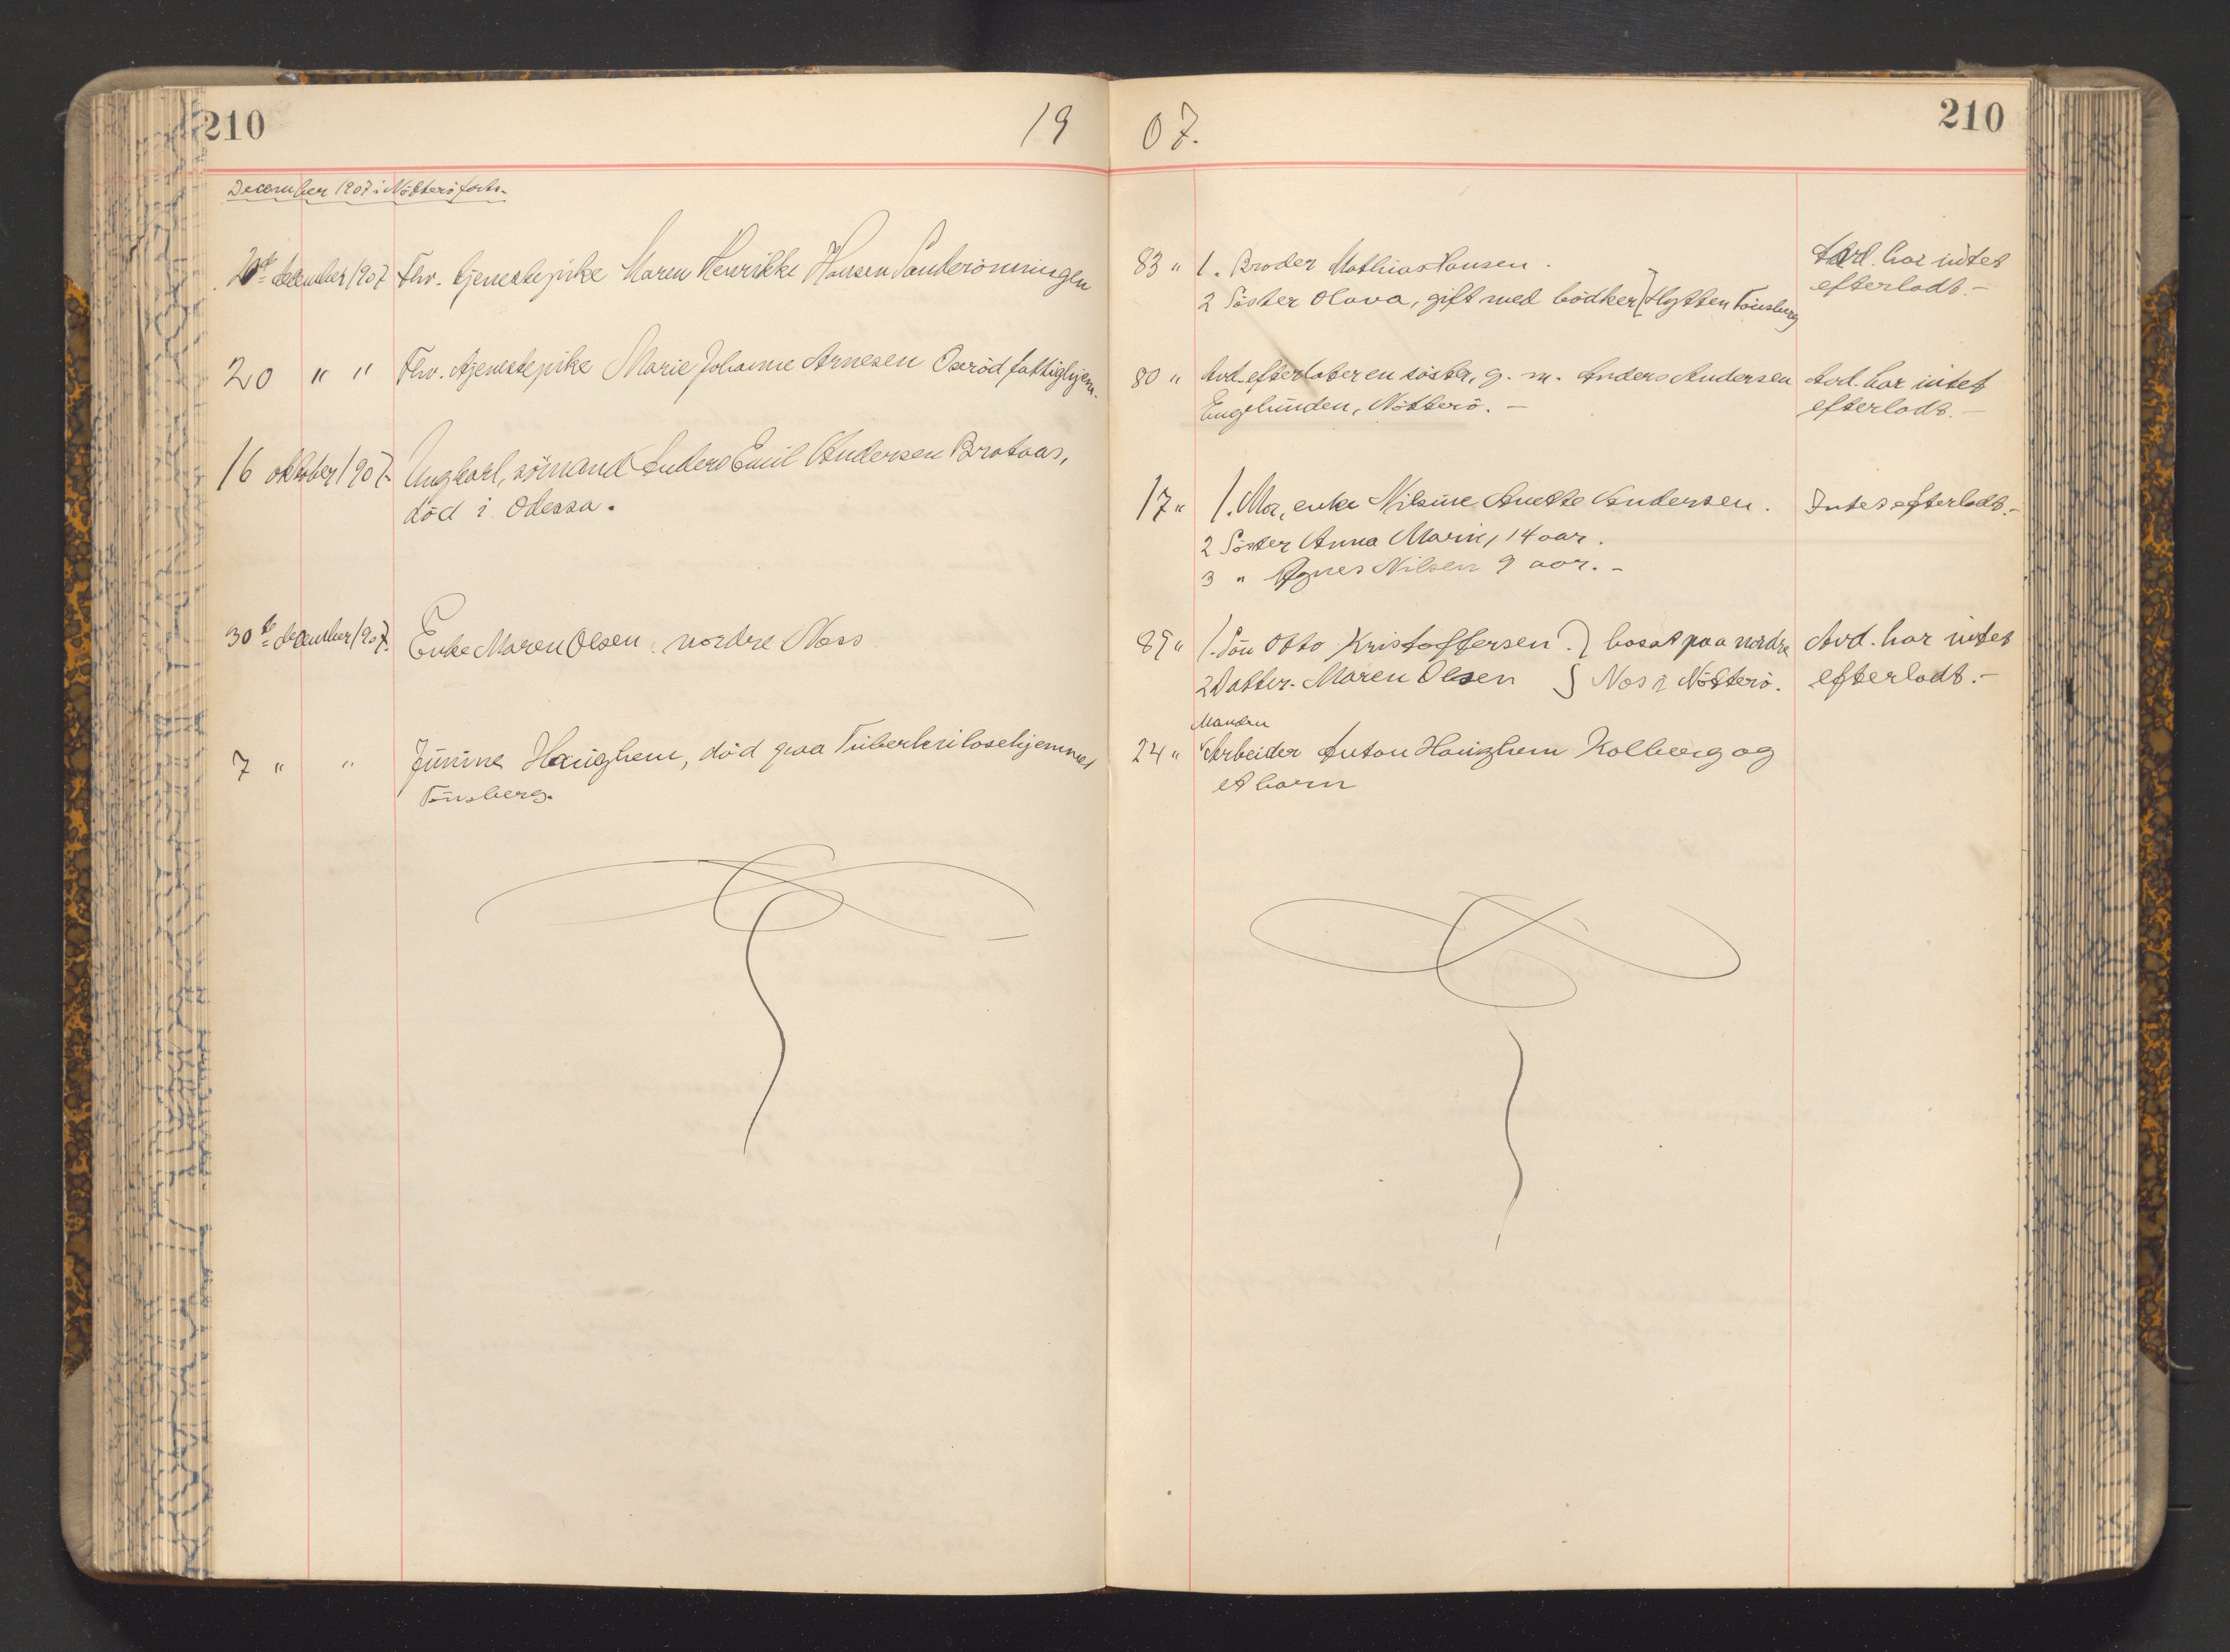 210
1907.
210
December 1907 i Nötterö forts.
20de december 1907 Fhv. tjenestepike Maren Henrikke Hansen Sanderönningen
83 " 1. Broder Mathias Hansen.
2 Söster Olava, gift med bödker Hytten Tönsberg
Avd. har intet
efterladt.-
20 " " Fhv. tjenestepike Marie Johanne Arnesen Oseröd fattighjem.
80 " Avd. efterlater en söster, g. m. Anders Andersen
Engelunden, Nötterö.-
Avd. har intet
efterladt.-
16 oktober 1907. Ungkarl, sömand Anders Emil Andersen Brataas,
död i Odessa.
17 " 1. Mor, enke Nilsine Anette Andersen.
2 Söster Anna Marie, 14 aar.
3 " Agnes Nilsen 9 aar.-
Intet efterladt.-
30te december 1907. Enke Maren Olsen, nordre Næss
89 " 1. Sön Otto Kristoffersen. } bosat paa nordre
2 Datter Maren Olsen } Nes i Nötterö.
Avd. har intet
efterladt.-
7 " " Junine Haughem, död paa Tuberkulosehjemmet
Tönsberg.
Manden
24 " Arbeider Anton Haughem Kolberg og
et barn